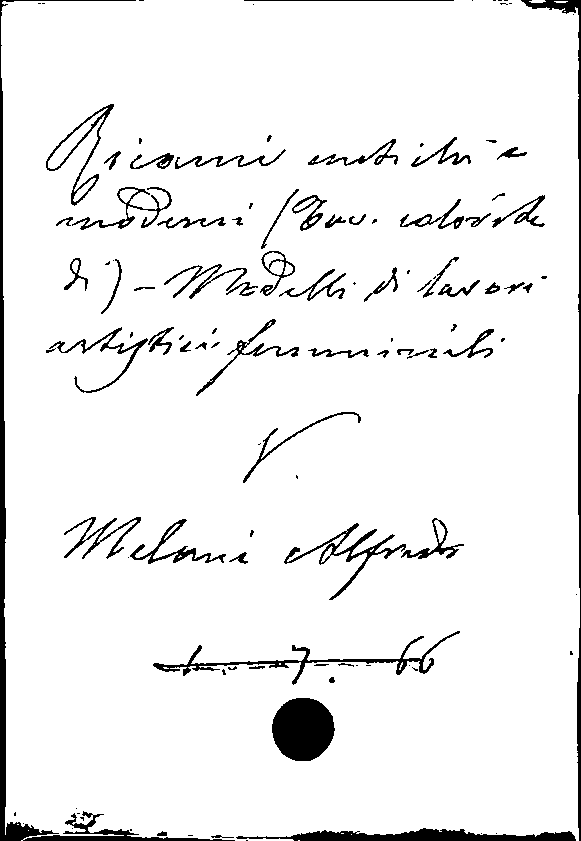 Ricami antichi e
moderni (Tav. colorate
di) - Modelli di lavori
artistici femminili
V.
Melani Alfredo
1. 7. 66